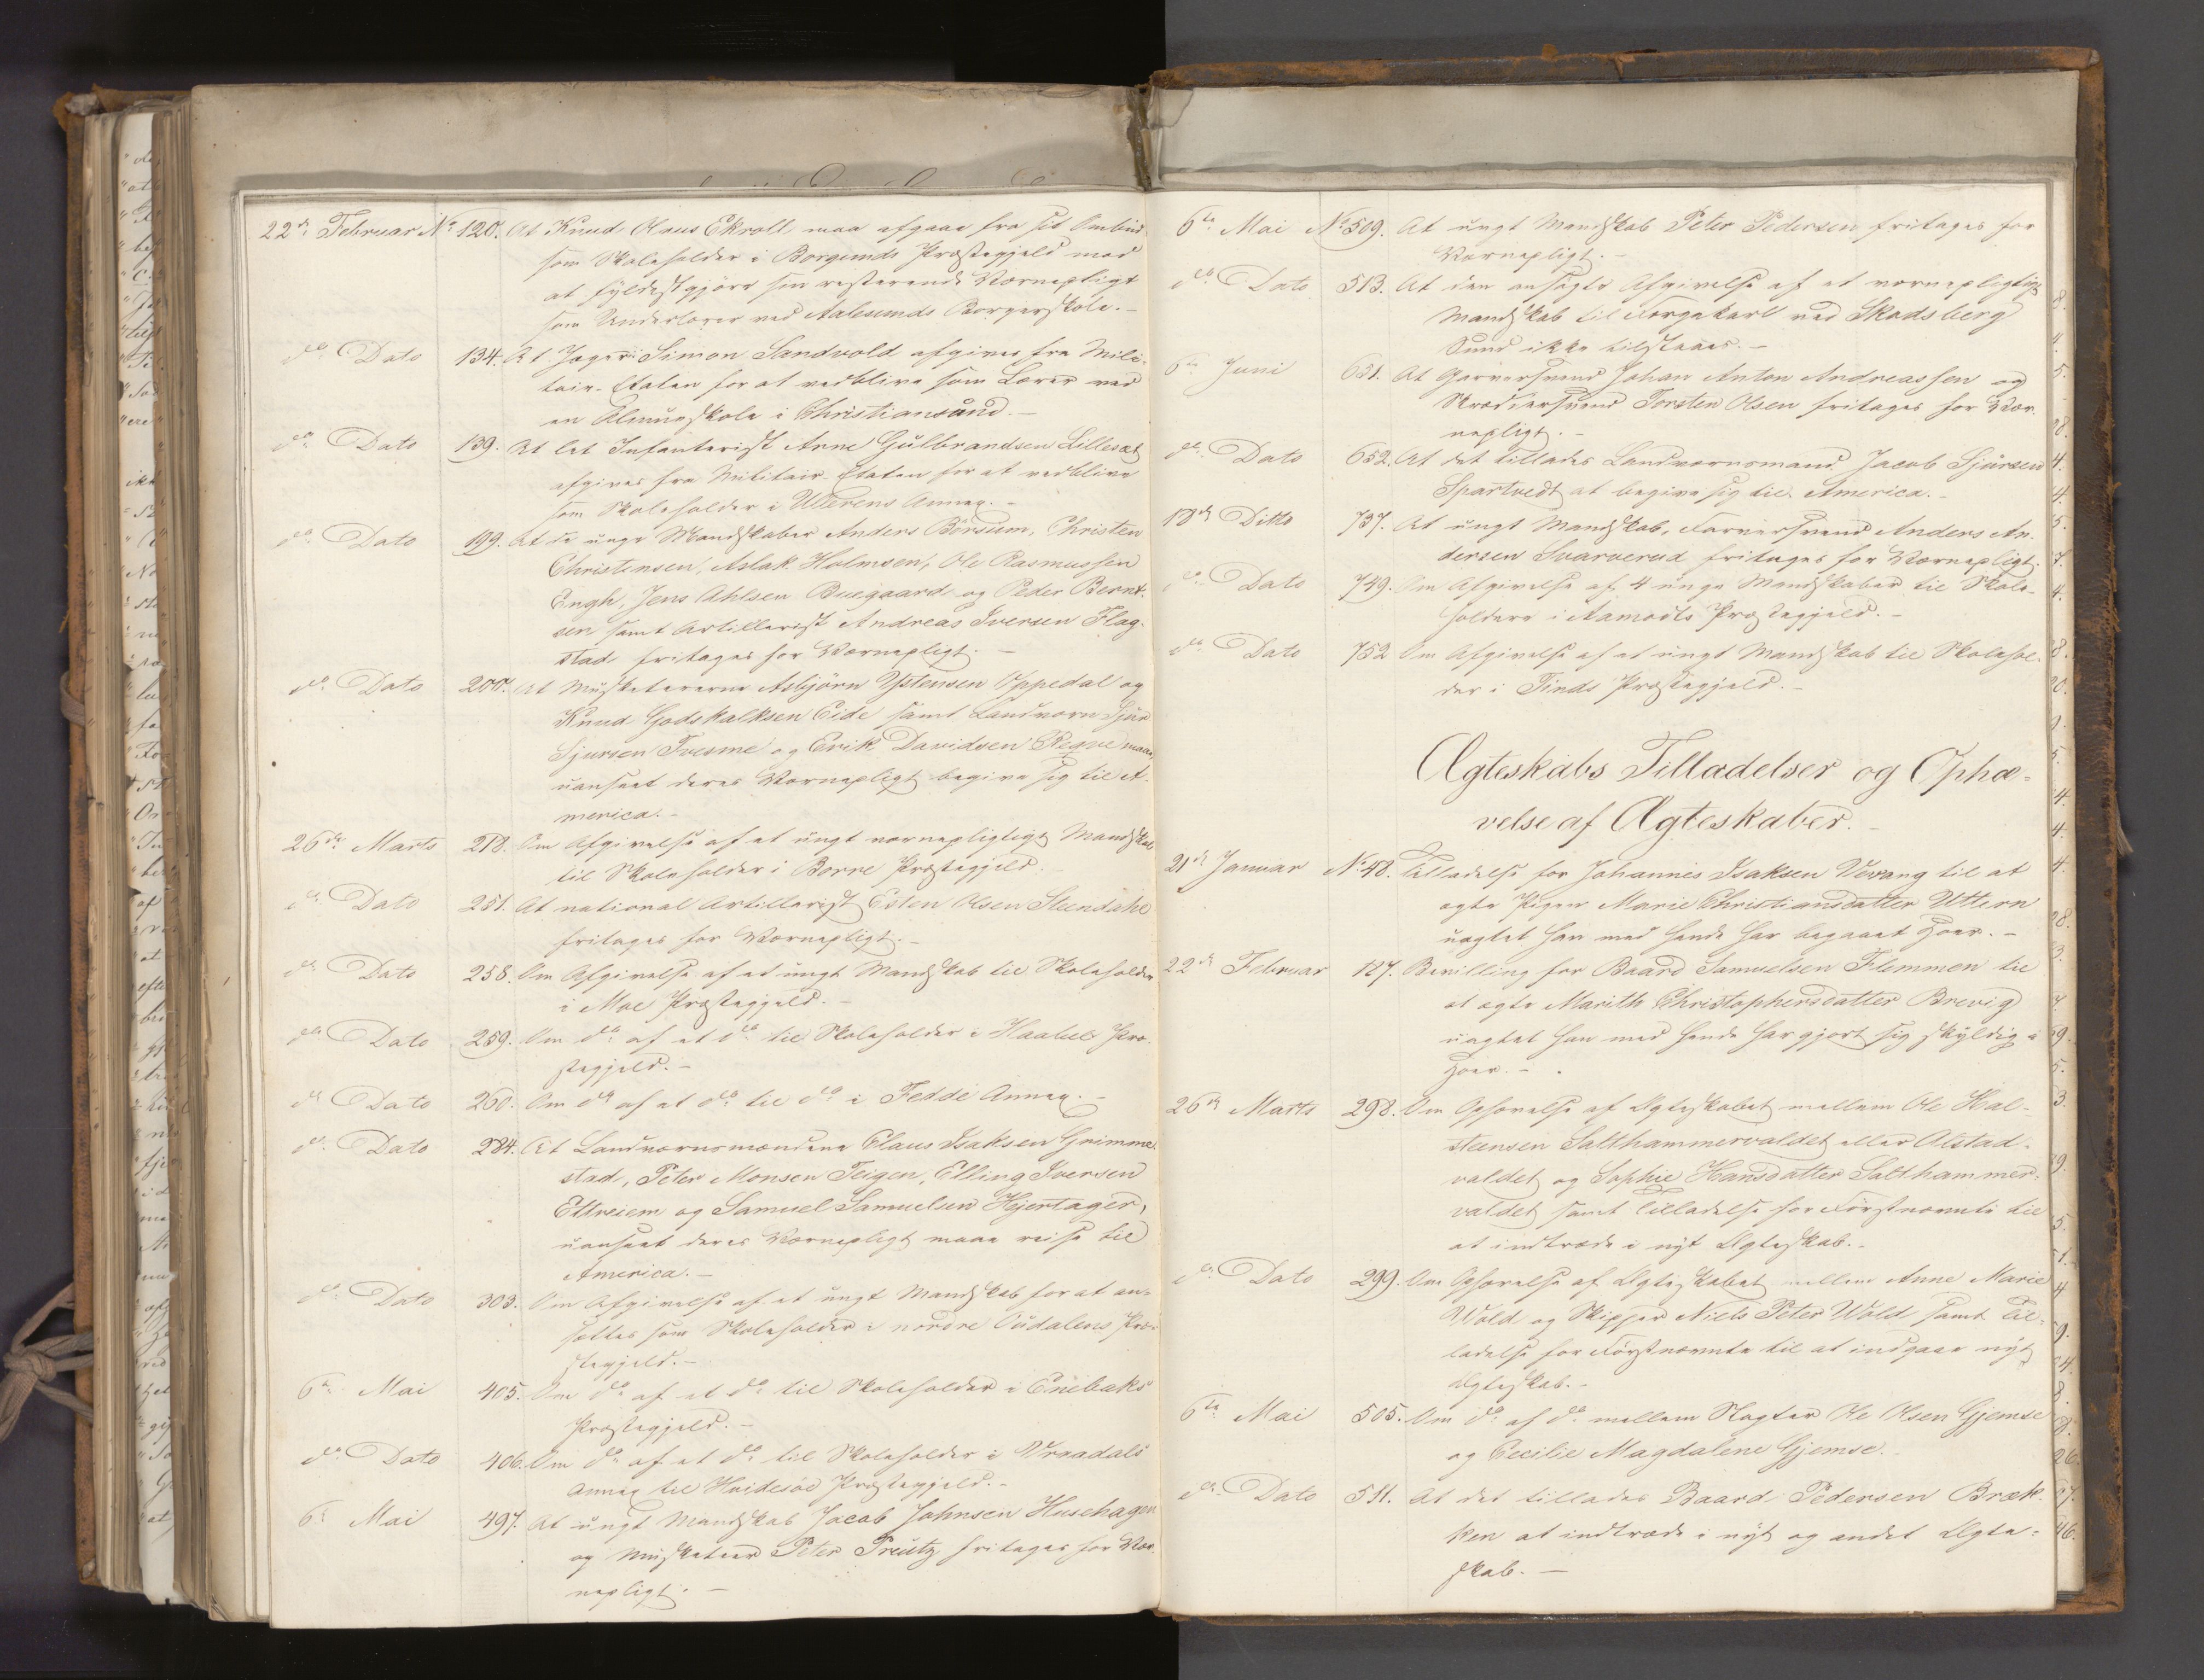 22de Februar No 120. At Knud Claus Ekroll maa afgaae fra sit Ombud
som Skoleholder i Borgunds Præstegjeld mod
at fyldestgjøre sin resterende Værnepligt
som Underlærer ved Aalesunds Borgerskole.-
do Dato 134. At Jæger Simon Sandvold afgives fra Mili-
tair-Etaten for at vedblive som Lærer ved
en Almueskole i Christiansund.-
do Dato 139. At let Infanterist Arne Gulbrandsen Lillesæt
afgives fra Militair-Etaten for at vedblive
som Skoleholder i Ullerens Annex.-
do Dato 199. At de unge Mandskaber Anders Börsum, Christen
Christensen, Aslak Holmsen, Ole Rasmussen
Engh, Jens Ahlsen Buegaard og Peder Bernt-
sen samt Artillerist Andreas Iversen Flag-
stad fritages for Værnepligt.-
do Dato 200. At Musketererne Asbjörn Ystensen Oppedal og
Knud Godskalksen Eide samt Landværn Sjur
Sjursen Tvesme og Erik Davidsen Reqve maae,
uanseet deres Værnepligt begive sig til A-
merica.-
26de Marts 218. Om Afgivelse af et ungt værnepligtigt Mandskab
til Skoleholder i Borre Præstegjeld.
do Dato 251. At national Artillerist Esten Olsen Steendahl
fritages for Værnepligt.-
do Dato 258. Om Afgivelse af et ungt Mandskab til Skoleholder
i Moe Præstegjeld.-
do Dato 259. Om do af et do til Skoleholder i Haabels Præ-
stegjeld.-
do Dato 260. Om do af et do til do i Fedde Annex.-
do Dato 284. At Landværnsmændene Claus Isaksen Grimme-
stad, Peter Monsen Teigen, Elling Iversen
Ettreiem og Samuel Samuelsen Hjertager,
uanseet deres Værnepligt maae reise til
America.-
do Dato 303. Om Afgivelse af et ungt Mandskab for at an-
sættes som Skoleholder i nordre Oudalens Præ-
stegjeld.-
6te Mai 405. Om do af et do til Skoleholder i Enebaks
Præstegjeld.-
do Dato 406. Om do af et do til Skoleholder i Vraadals
Annex til Hvidesøe Præstegjeld.-
6te Mai 497. At ungt Mandskab Jacob Johnsen Husehagen
og Musketeer Peter Preutz fritages for Vær-
nepligt.-
6te Mai No 509. At ungt Mandskab Peter Pedersen fritages for
Værnepligt.-
do Dato 513. At den ansøgte Afgivelse af et værnepligtigt
Mandskab til Færgekarl ved Skadsberg
Sund ikke tilstaaes.-
6te Juni 651. At Garversvend Johan Anton Andreassen og
Skrædersvend Torsten Olsen fritages for Vær-
nepligt.-
do Dato 652. At det tillades Landværnsmand Jacob Sjursen
Spartvedt at begive sig til America.-
18de Ditto 737. At ungt Mandskab, Farversvend Anders An-
dersen Svarverud fritages for Værnepligt.
do Dato 749. Om Afgivelse af 4 unge Mandskaber til Skole-
holdere i Aamodts Præstegjeld.-
do Dato 752 Om Afgivelse af et ungt Mandskab til Skolehol-
der i Tinds Præstegjeld.-
Ægteskabs Tilladelser og Ophæ-
velse af Ægteskaber.-
21de Januar No 48. Tilladelse for Johannes Isaksen Vevang til at
ægte Pigen Marie Christiansdatter Uttern
uagtet han med hende har begaaet Hoer.-
22de Februar 127. Bevilling for Baard Samuelsen Flemmen til
at ægte Marith Christophersdatter Brevig
uagtet han med hende har gjort sig skyldig i
Hoer.-
26de Marts 298. Om Ophævelse af Ægteskabet mellem Ole Hal-
steensen Salthammervaldet eller Alstad-
valdet og Sophie Hansdatter Salthammer-
valdet samt Tilladelse for Førstnævnte til
at indtræde i nyt Ægteskab.-
do Dato 299. Om Ophævelse af Ægteskabet mellem Anne Marie
Wold og Skipper Niels Peter Wold samt Til-
ladelse for Førstnævnte til at indgaae nyt
Ægteskab.-
6te Mai 505. Om do af do mellem Slagter Ole Olsen Gjemse
og Cecilie Magdalene Gjemse.
do Dato 511. At det tillades Baard Pedersen Bræk-
ken at indtræde i nyt og andet Ægte-
skab.-